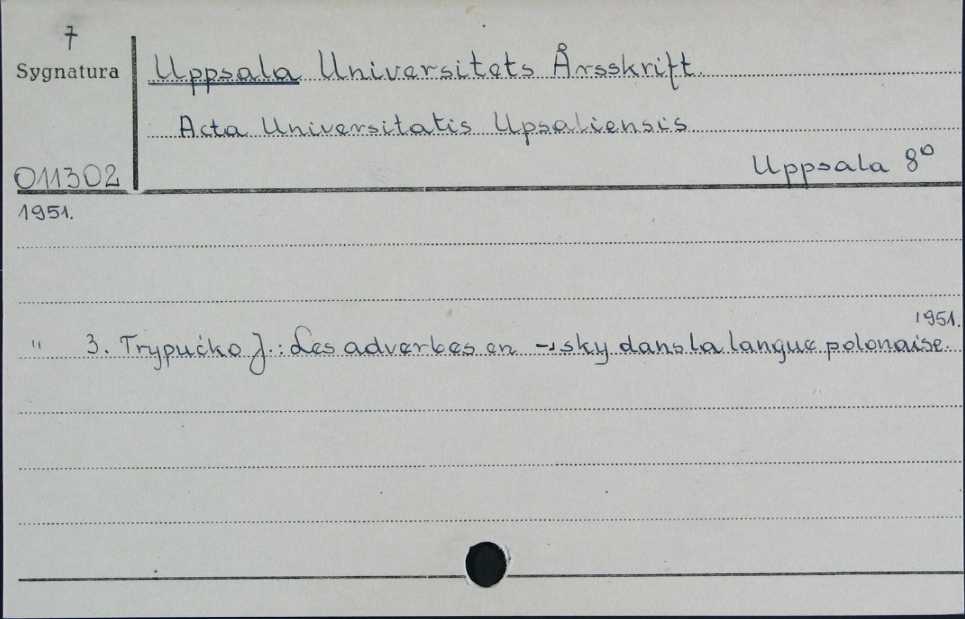 7
Sygnatura
Uppsala Universitets Årsskrift.
Acta Universitatis Upsaliensis
Uppsala 8°
011302
1951.
1951.
" 3. Trypućko J.: Les adverbes en -sky dans la langue polonaise.